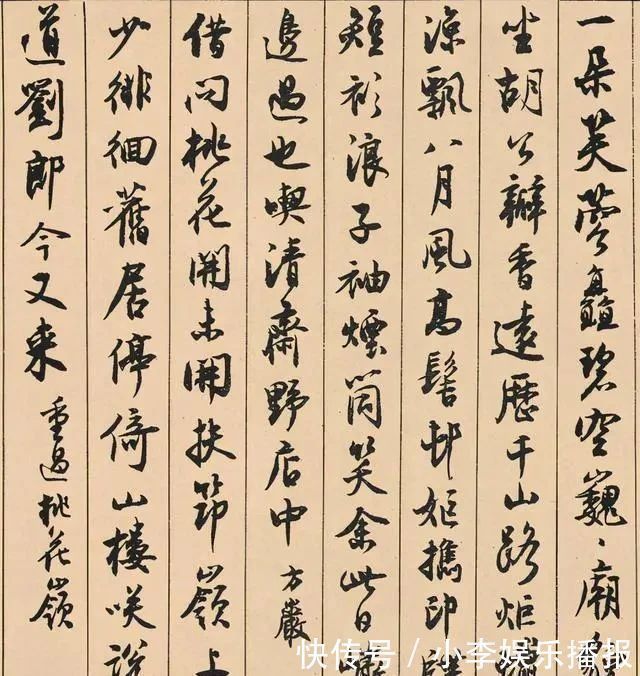 一朵芙蓉矗碧空巍〻廟
坐胡公瓣香遠歷千山路炬
涼飄八月風高髻邨姬擕印
短衫浪子袖煙筒笑余此日
邊過也喫清齋野店中 方巖
借問桃花開未開扶筇嶺上
少徘徊舊居停倚山樓咲說
道劉郎今又來 重過桃花嶺
快传号 / 小李娱乐播报